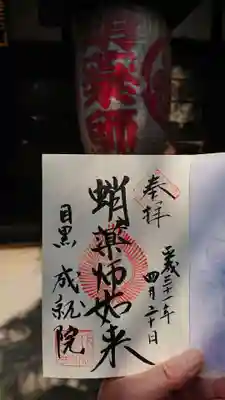 薬師
奉拝
平成三十一年
四月二十日
蛸薬師如来
目黒 成就院